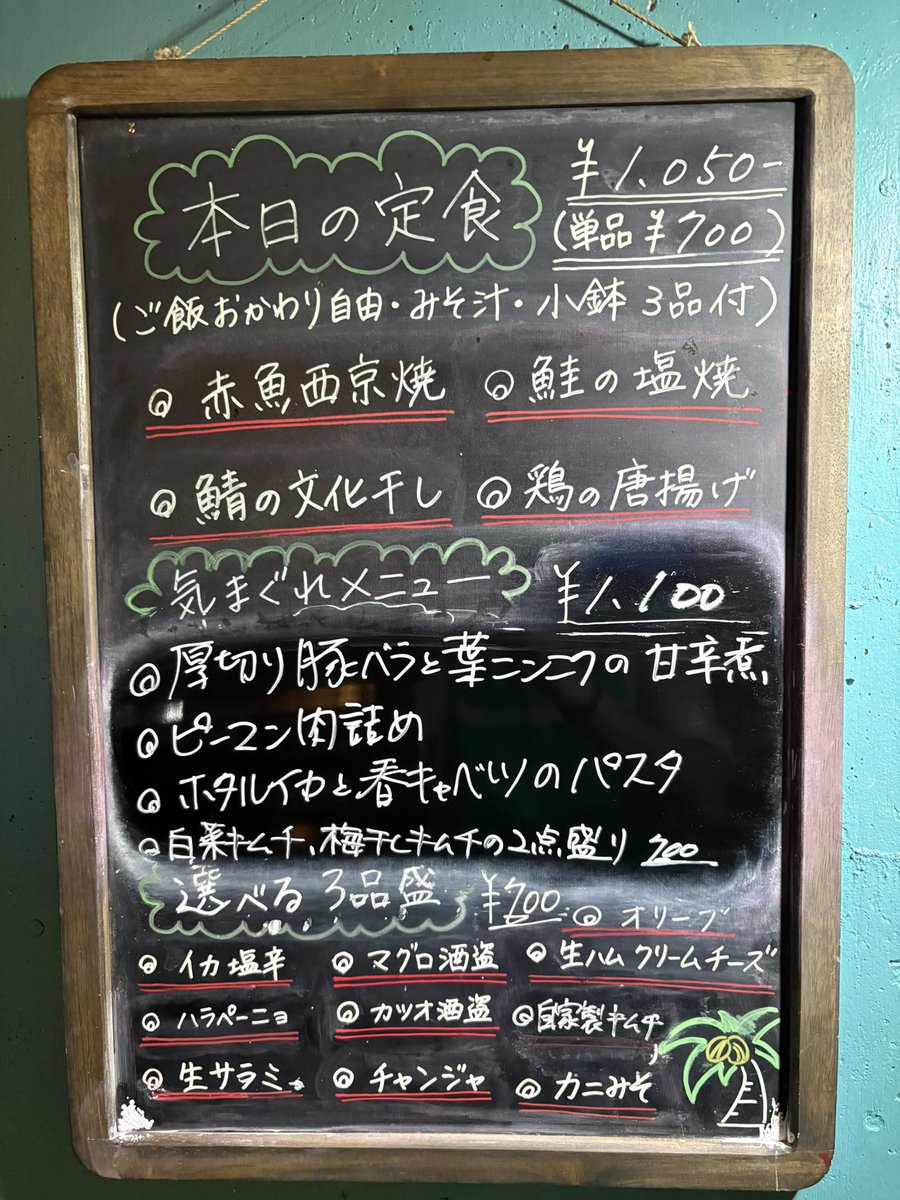 本日の定食 ¥1.050-
(単品¥700)
(ご飯おかわり自由・みそ汁・小鉢3品付)
◎赤魚西京焼 ◎鮭の塩焼
◎鯖の文化干し ◎鶏の唐揚げ
気まぐれメニュー ¥1.100
◎厚切り豚バラと葉ニンニクの甘辛煮
◎ピーマン肉詰め
◎ホタルイカと春キャベツのパスタ
◎白菜キムチ、梅干しキムチの2点盛り 700
選べる3品盛 ¥700 ◎オリーブ
◎イカ塩辛 ◎マグロ酒盗 ◎生ハムクリームチーズ
◎ハラペーニョ ◎カツオ酒盗 ◎自家製キムチ
◎生サラミ ◎チャンジャ ◎カニみそ